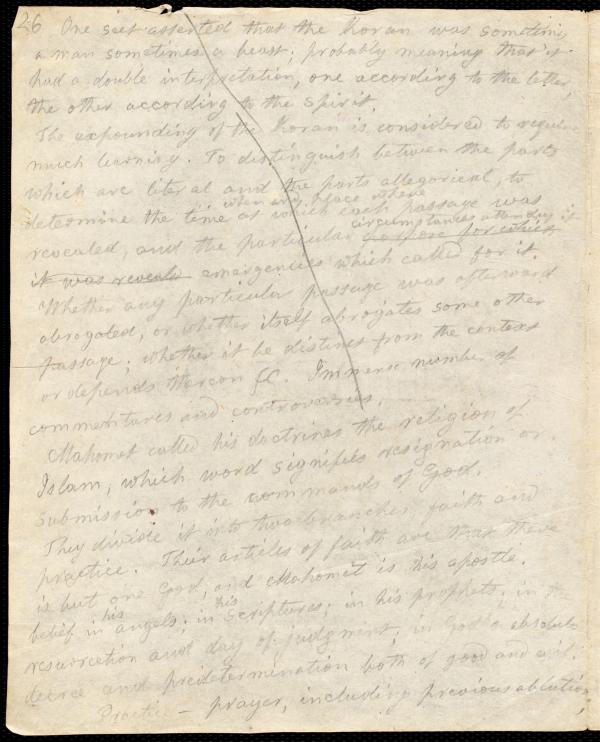 26 One sect asserted that the Koran was sometimes
a man sometimes a beast; probably meaning that it
had a double interpretation, one according to the letter,
the other according to the spirit.
The expounding of the Koran is considered to require
much learning. To distinguish between the parts
which are literal and the parts allegorical, to
when any, place where
determine the time as which each passage was
circumstances attending it
revealed, and the particular purpose for which
it was reveals emergencies which called for it.
Whether any particular passage was afterward
abrogated, or whether itself abrogates some other
passage; whether it be distinct from the context
or depends thereon &c. Immense number of
commentaries and controversies.
Mahomet called his doctrines the religion of
Islam, which word signifies resignation or
submission to the commands of God.
They divide it into two branches, faith and
practice. Their articles of faith are that there
is but one God, and Mahomet is his apostle.
his his
belief in angels; in Scriptures; in his prophets; in the
resurrection and day of judgment, in God's absolute
decree and predetermination both of good and evil.
Practice – prayer, including previous ablution,